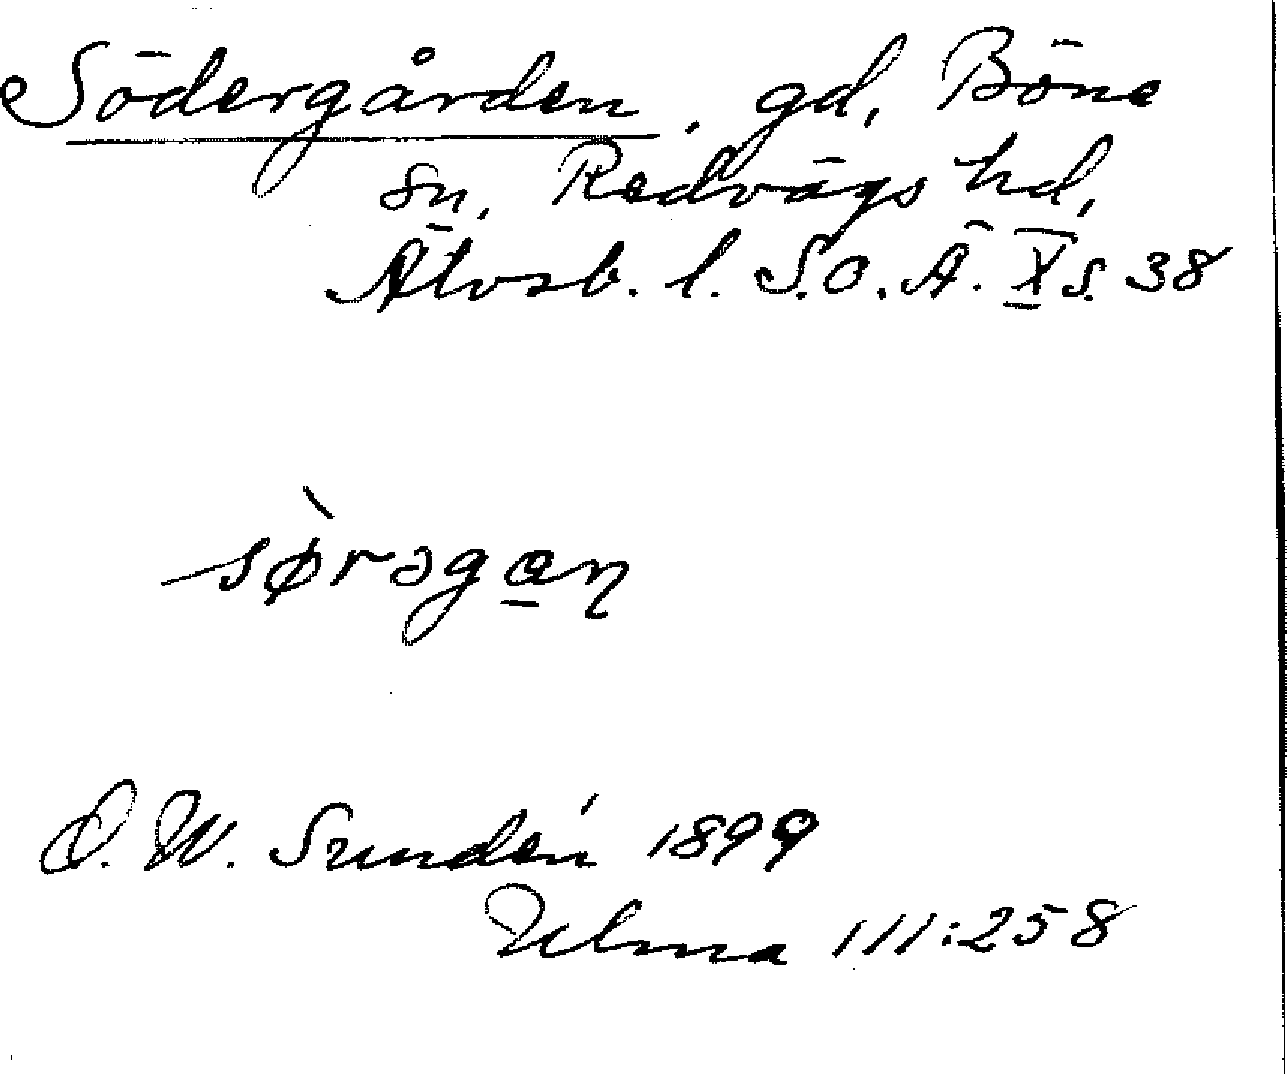 Södergården. gd, Böne
sn, Redvägs hd,
Älvsb. l. S.O.Ä. X s. 38
sø̀rəga̲n
D. W. Sundén 1899
Ulma 111:258